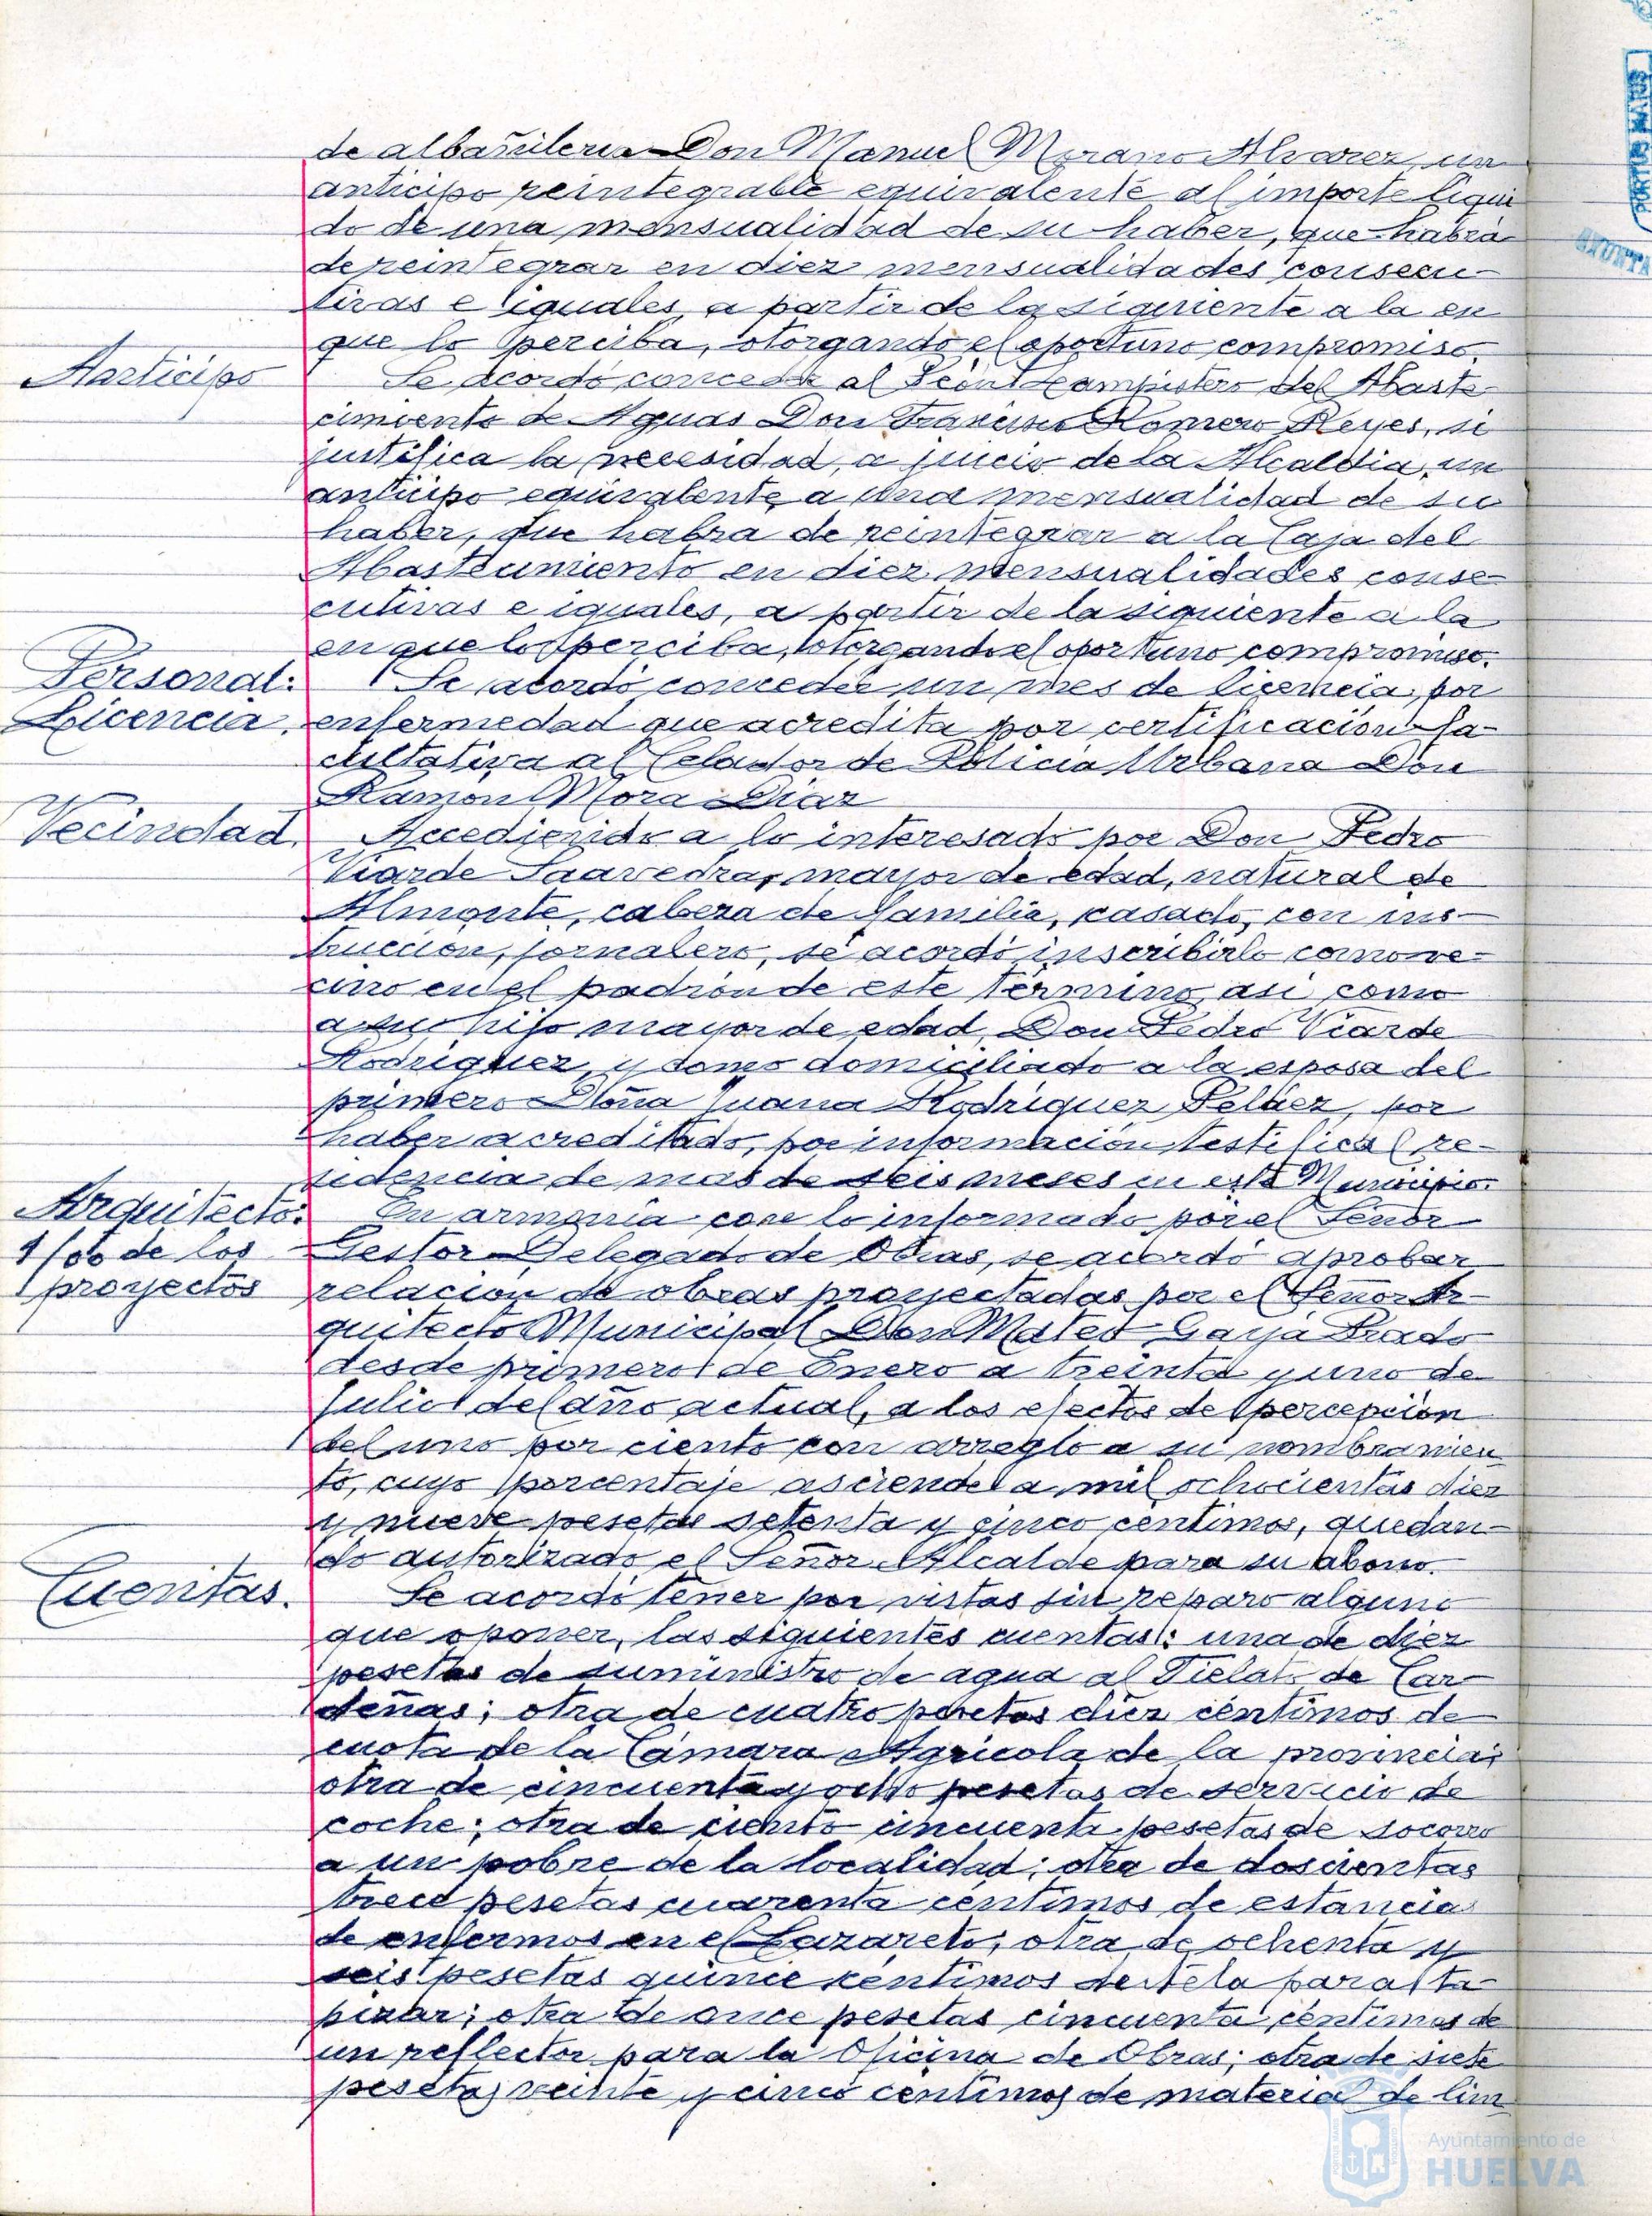 de albañileria Don Manuel Morano Alvarez, un
anticipo reintegrable equivalente al importe liqui
do de una mensualidad de su haber, que habrá
de reintegrar en diez mensualidades consecu-
tivas e iguales, a partir de la siguiente a la en
que lo perciba, otorgando el oportuno compromiso.
Anticipo
Se acordó conceder al del Abaste-
cimiento de Aguas Don Francisco Romero Reyes, si
justifica la necesidad, a juicio de la Alcaldia, un
anticipo equivalente a una mensualidad de su
haber, que habra de reintegrar a la Caja del
Abastecimiento en diez mensualidades conse-
cutivas e iguales, a partir de la siguiente a la
en que lo perciba, otorgando el oportuno compromiso.
Personal:
Licencia.
Se acordó conceder un mes de licencia, por
enfermedad que acredita por certificación fa-
cultativa al Celador de Policia Urbana Don
Ramon Mora Diaz
Vecindad.
Accediendo a lo interesado por Don Pedro
Viarde Saavedra, mayor de edad, natural de
Almonte, cabeza de familia, casado, con ins-
trucción, jornalero, se acordó inscribirlo como ve-
cino en el padrón de este término, asi como
a su hijo mayor de edad, Don Pedro Viarde
Rodriguez, y como domiciliado a la esposa del
primero Doña Juana Rodriguez Pelaez, por
haber acreditado, por información testifical re-
sidencia de mas de seis meses en este Municipio.
Arquitecto:
1/oo de los
proyectos
En armonia con lo informado por el Señor
Gestor Delegado de Obras, se acordó aprobar
relación de obras proyectadas por el Señor Ar-
quitecto Municipal Don Mateo Gayá Prado
desde primero de Enero a treinta y uno de
Julio del año actual, a los efectos de percepción
del uno por ciento con arreglo a su nombramien
to, cuyo porcentaje asciende a mil ochocientas diez
y nueve pesetas setenta y cinco centimos, quedan-
do autorizado el Señor Alcalde para su abono.
Cuentas.
Se acordó tener por vistas sin reparo alguno
que oponer, las siguientes cuentas: una de diez
pesetas de suministro de agua al de Car-
deñas; otra de cuatro pesetas diez céntimos de
cuota de la Cámara Agricola de la provincia;
otra de cincuenta y ocho pesetas de servicio de
coche; otra de ciento cincuenta pesetas de socorro
a un pobre de la localidad; otra de doscientas
trece pesetas cuarenta céntimos de estancia
de enfermos en el Lazareto; otra de ochenta y
seis pesetas quince céntimos de tela para ta-
pizar; otra de once pesetas cincuenta céntimos de
un reflector para la Oficina de Obras; otra de siete
pesetas veinte y cinco centimos de material de lim
PORTUS MARIS
AYUNTA
Ayuntamiento de
HUELVA